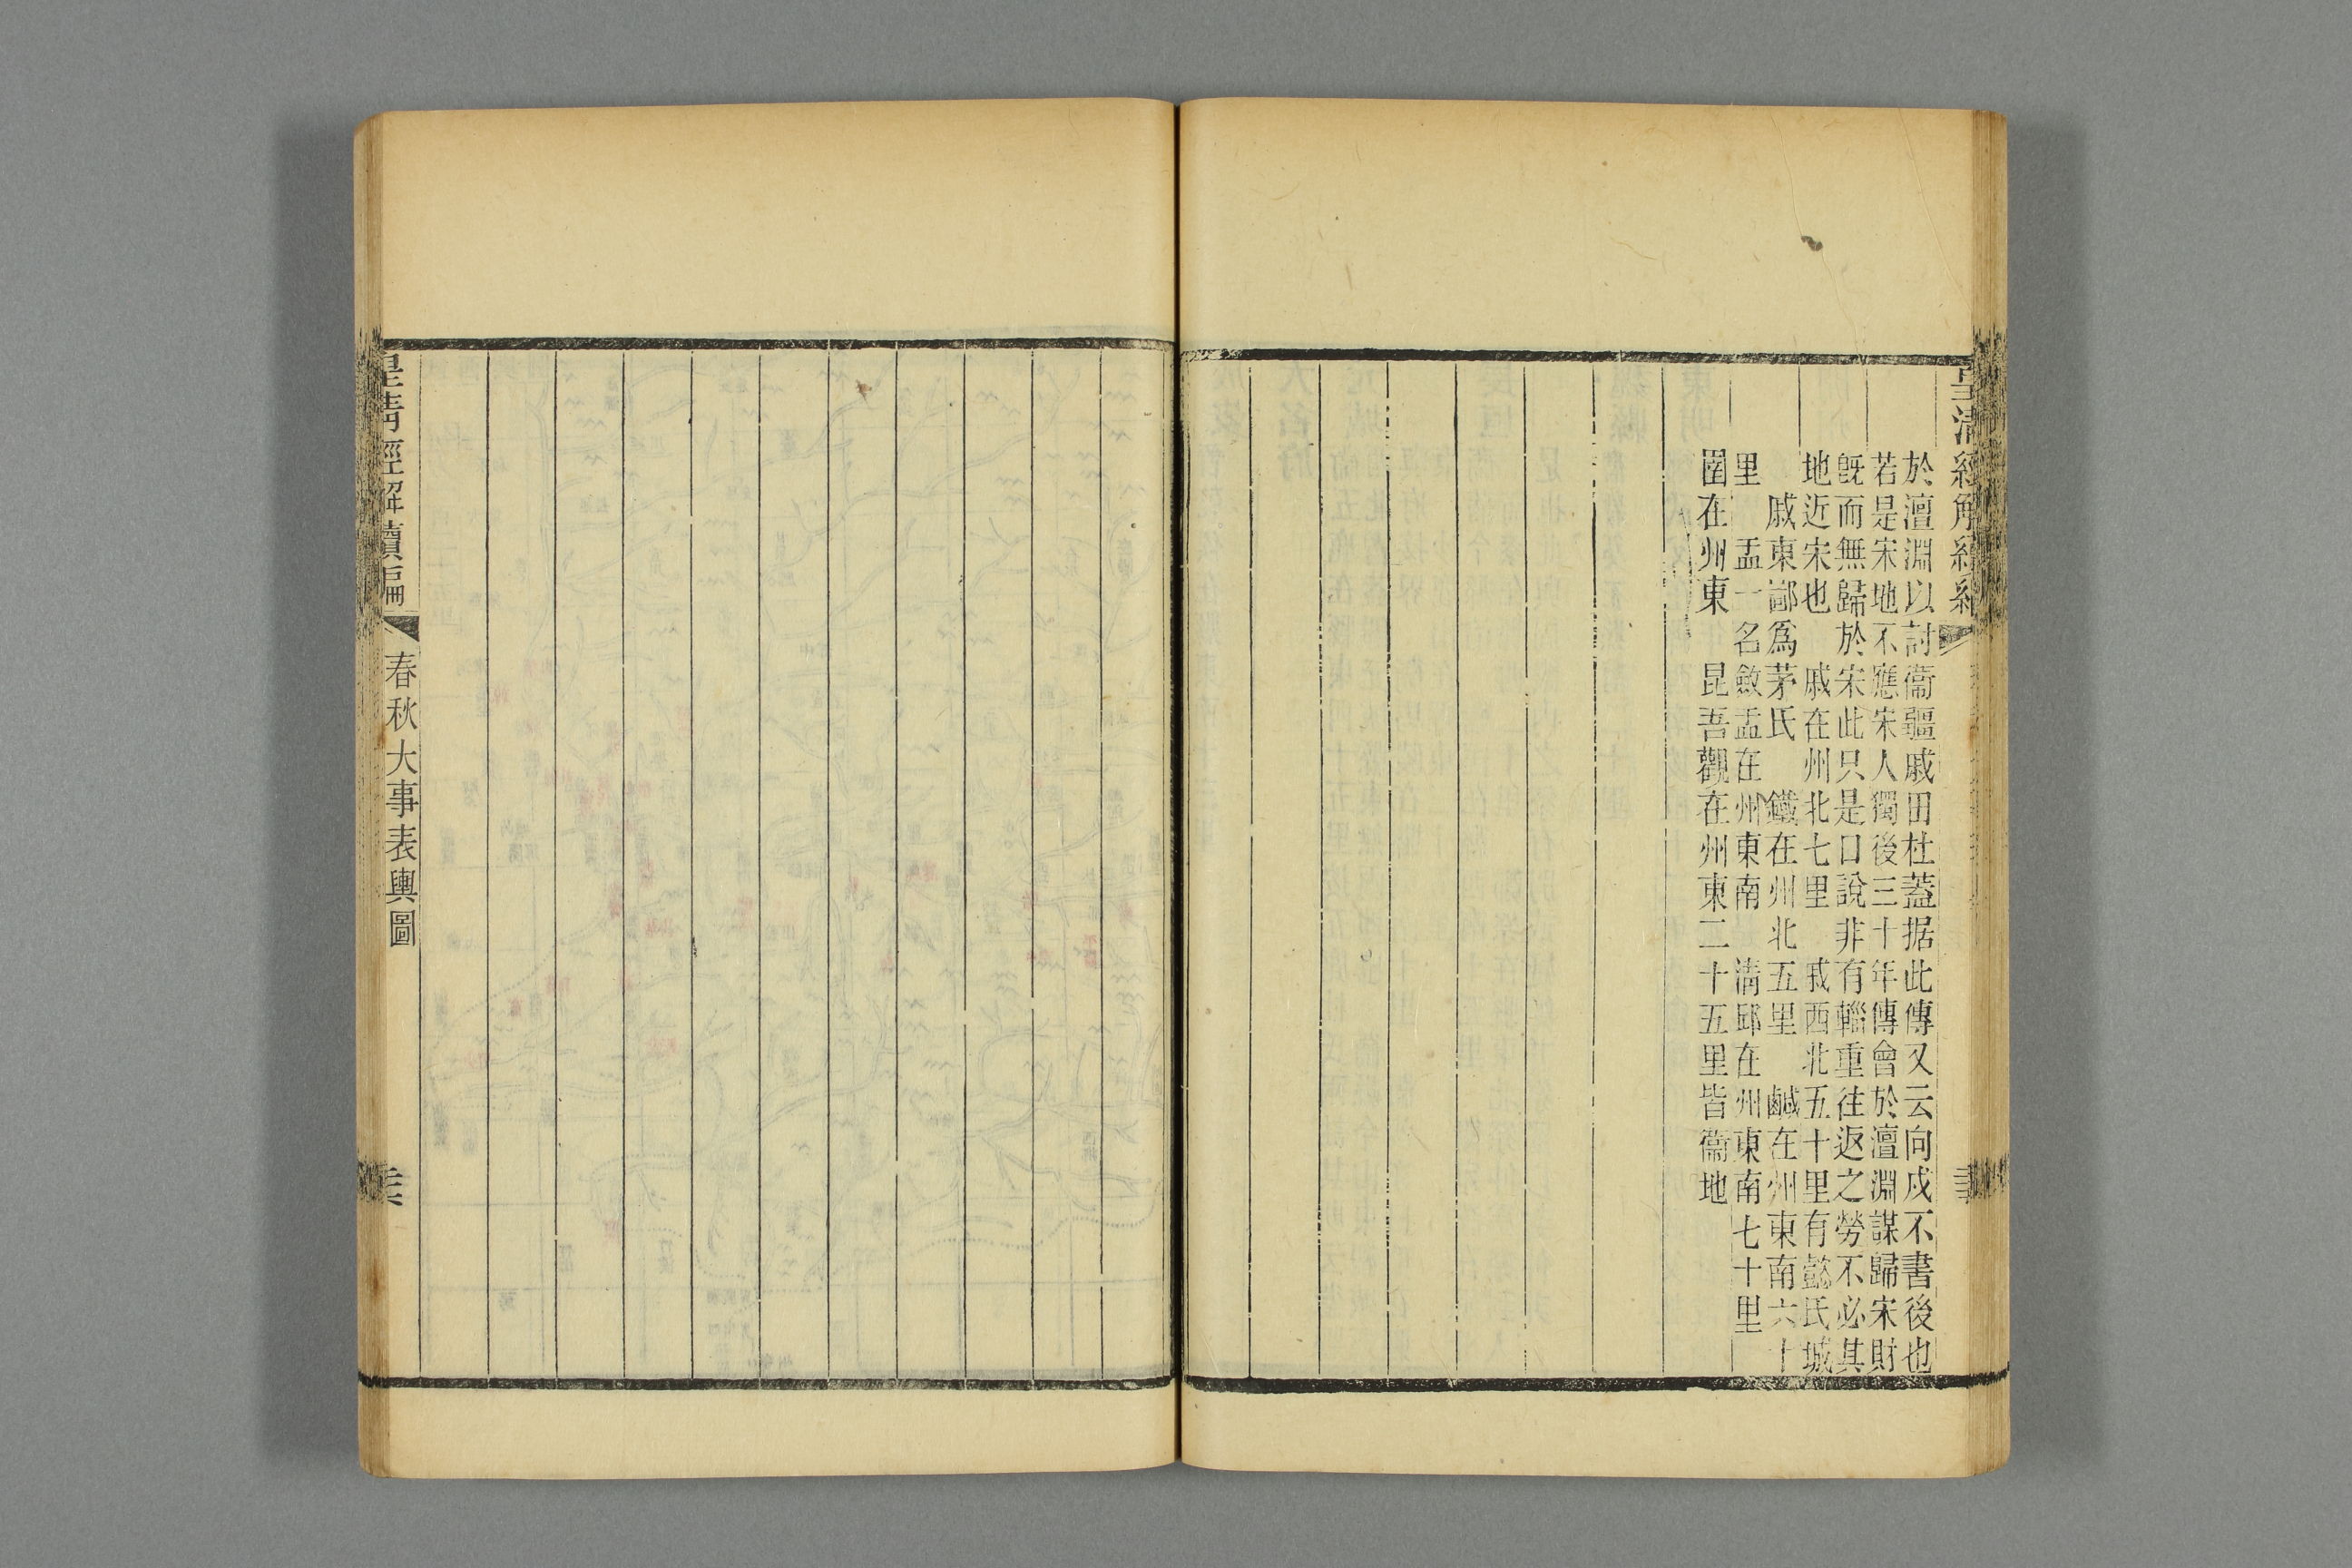 於澶淵以討衞疆戚田杜蓋据此傳又云向戍不書後也
若是宋地不應宋人獨後三十年傳會於澶淵謀歸宋財
旣而無歸於宋此只是口說非有輜重往返之勞不必其
地近宋也　戚在州北七里　戚西北五十里有懿氏城
戚東鄙爲茅氏　鐵在州北五里　鹹在州東南六十
里　盂一名斂盂在州東南　淸邱在州東南七十里
圉在州東　昆吾觀在州東二十五里皆衞地
皇清經解續編
春秋大事表輿圖